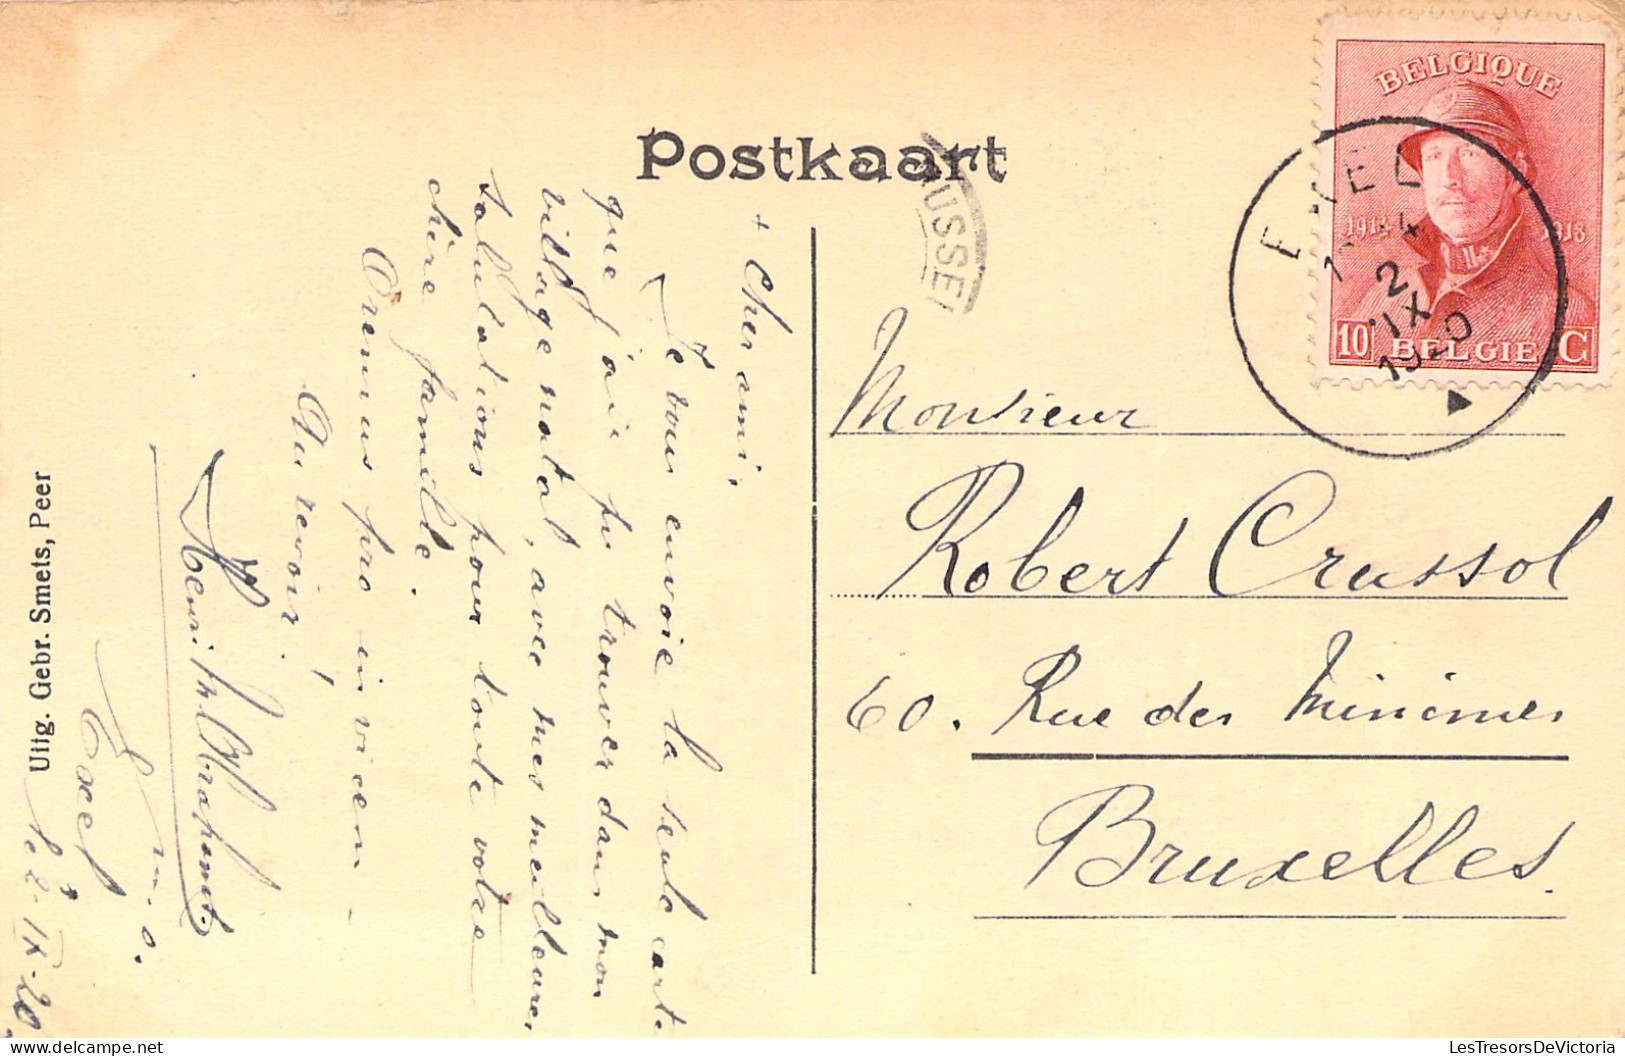 Postkaart
BELGIQUE
1914 1918
10 BELGIE C
EXEL
2
IX
1920
+ Cher ami,
Je vous envoie la seule carte
que j'ai pu trouver dans mon
village natal, avec mes meilleures
salutations pour toute votre
chère famille.
Oremus pro in vicem
Au revoir,
Henri
Exel
le 2-IX-20.
Uitg. Gebr. Smets, Peer
Monsieur
Robert Crussol
60. Rue des Minimes
Bruxelles.
LesTresorsDeVictoria